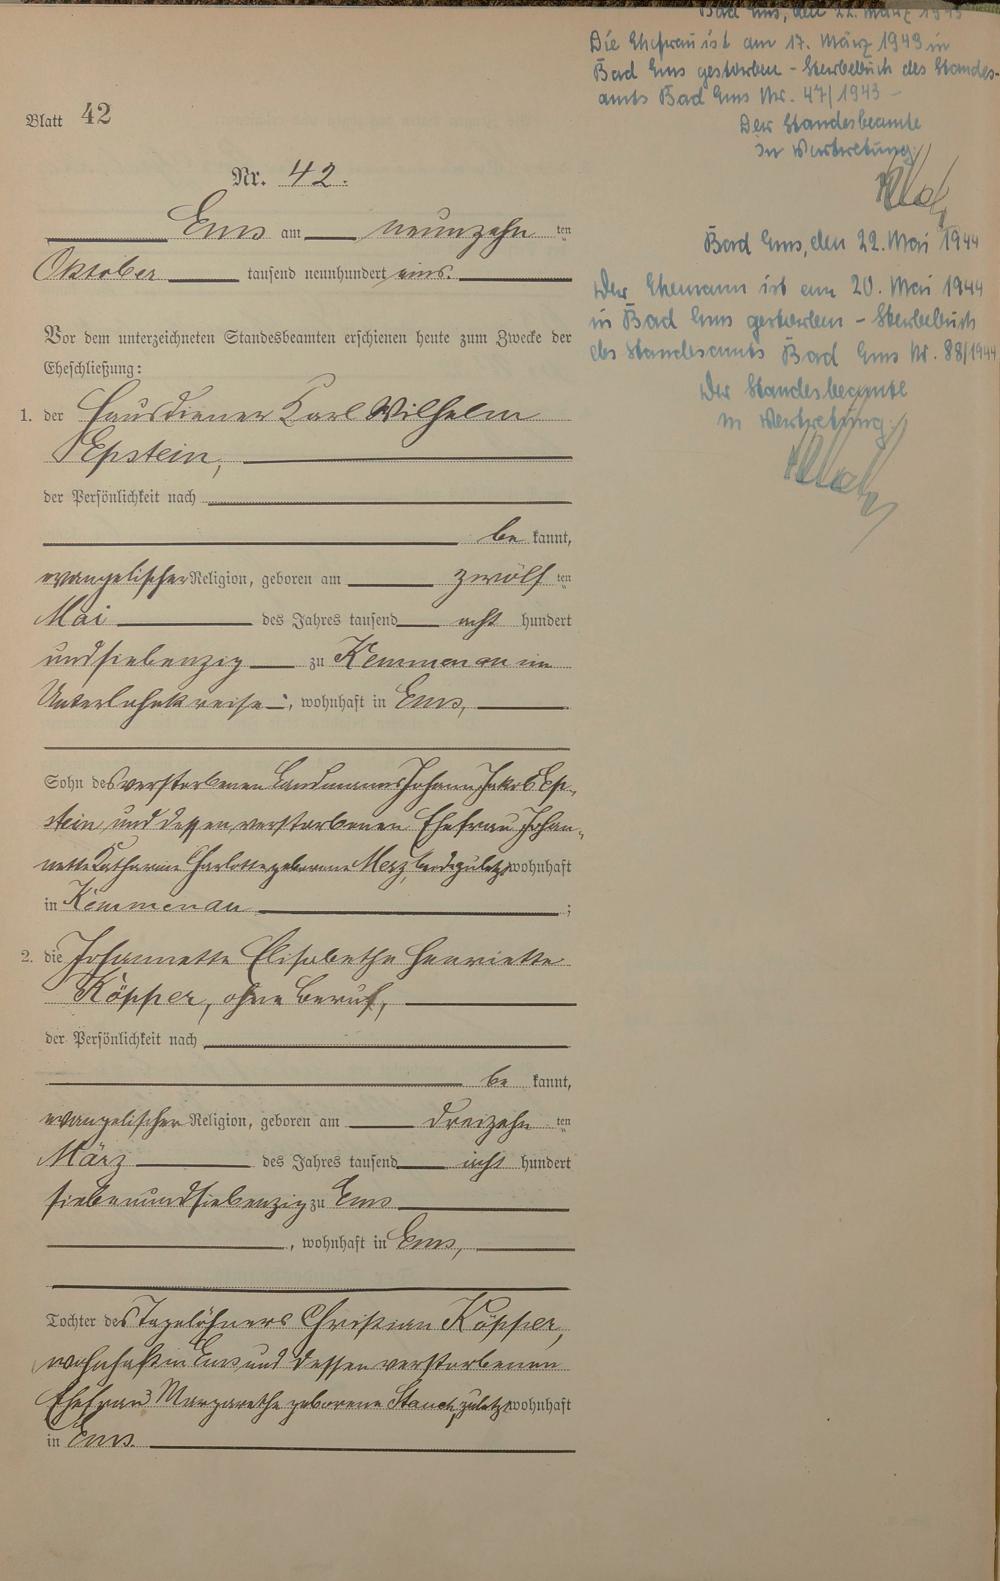 Bad Ems, den 22. März 1943
Die Ehefrau ist am 17. März 1943 in
Bad Ems gestorben - Sterbebuch des Standes-
amts Bad Ems Nr. 47/1943 -
Der Standesbeamte
in Vertretung:
Bad Ems, den 22. Mai 1944
Der Ehemann ist am 20. Mai 1944
in Bad Ems gestorben - Sterbebuch
des Standesamts Bad Ems Nr. 88/1944
Der Standesbeamte
in Vertretung:
Blatt 42
Nr. 42.
Ems am neunzehn ten
Oktober tausend neunhundert eins.
Vor dem unterzeichneten Standesbeamten erschienen heute zum Zwecke der
Eheschließung:
1. der Hausdiener Karl Wilhelm
Epstein,
der Persönlichkeit nach
be kannt,
evangelischer Religion, geboren am zwölf ten
Mai des Jahres tausend acht hundert
undsiebenzig zu Kemmenau im
Unterlahnkreise, wohnhaft in Ems,
Sohn des verstorbenen Landmanns Johann Jakob Ep-
stein und dessen verstorbenen Ehefrau Johan-
nette Katharine Charlotte geborene Merz, beide zuletzt wohnhaft
in Kemmenau ;
2. die Johannette Elisabethe Henriette
Köpper, ohne Beruf,
der Persönlichkeit nach
be kannt,
evangelischer Religion, geboren am dreizehn ten
März des Jahres tausend acht hundert
siebenundsiebenzig zu Ems
, wohnhaft in Ems,
Tochter des Tagelöhners Christian Köpper,
wohnhaft in Ems und dessen verstorbenen
Ehefrau Margarethe geborene zuletzt wohnhaft
in Ems.